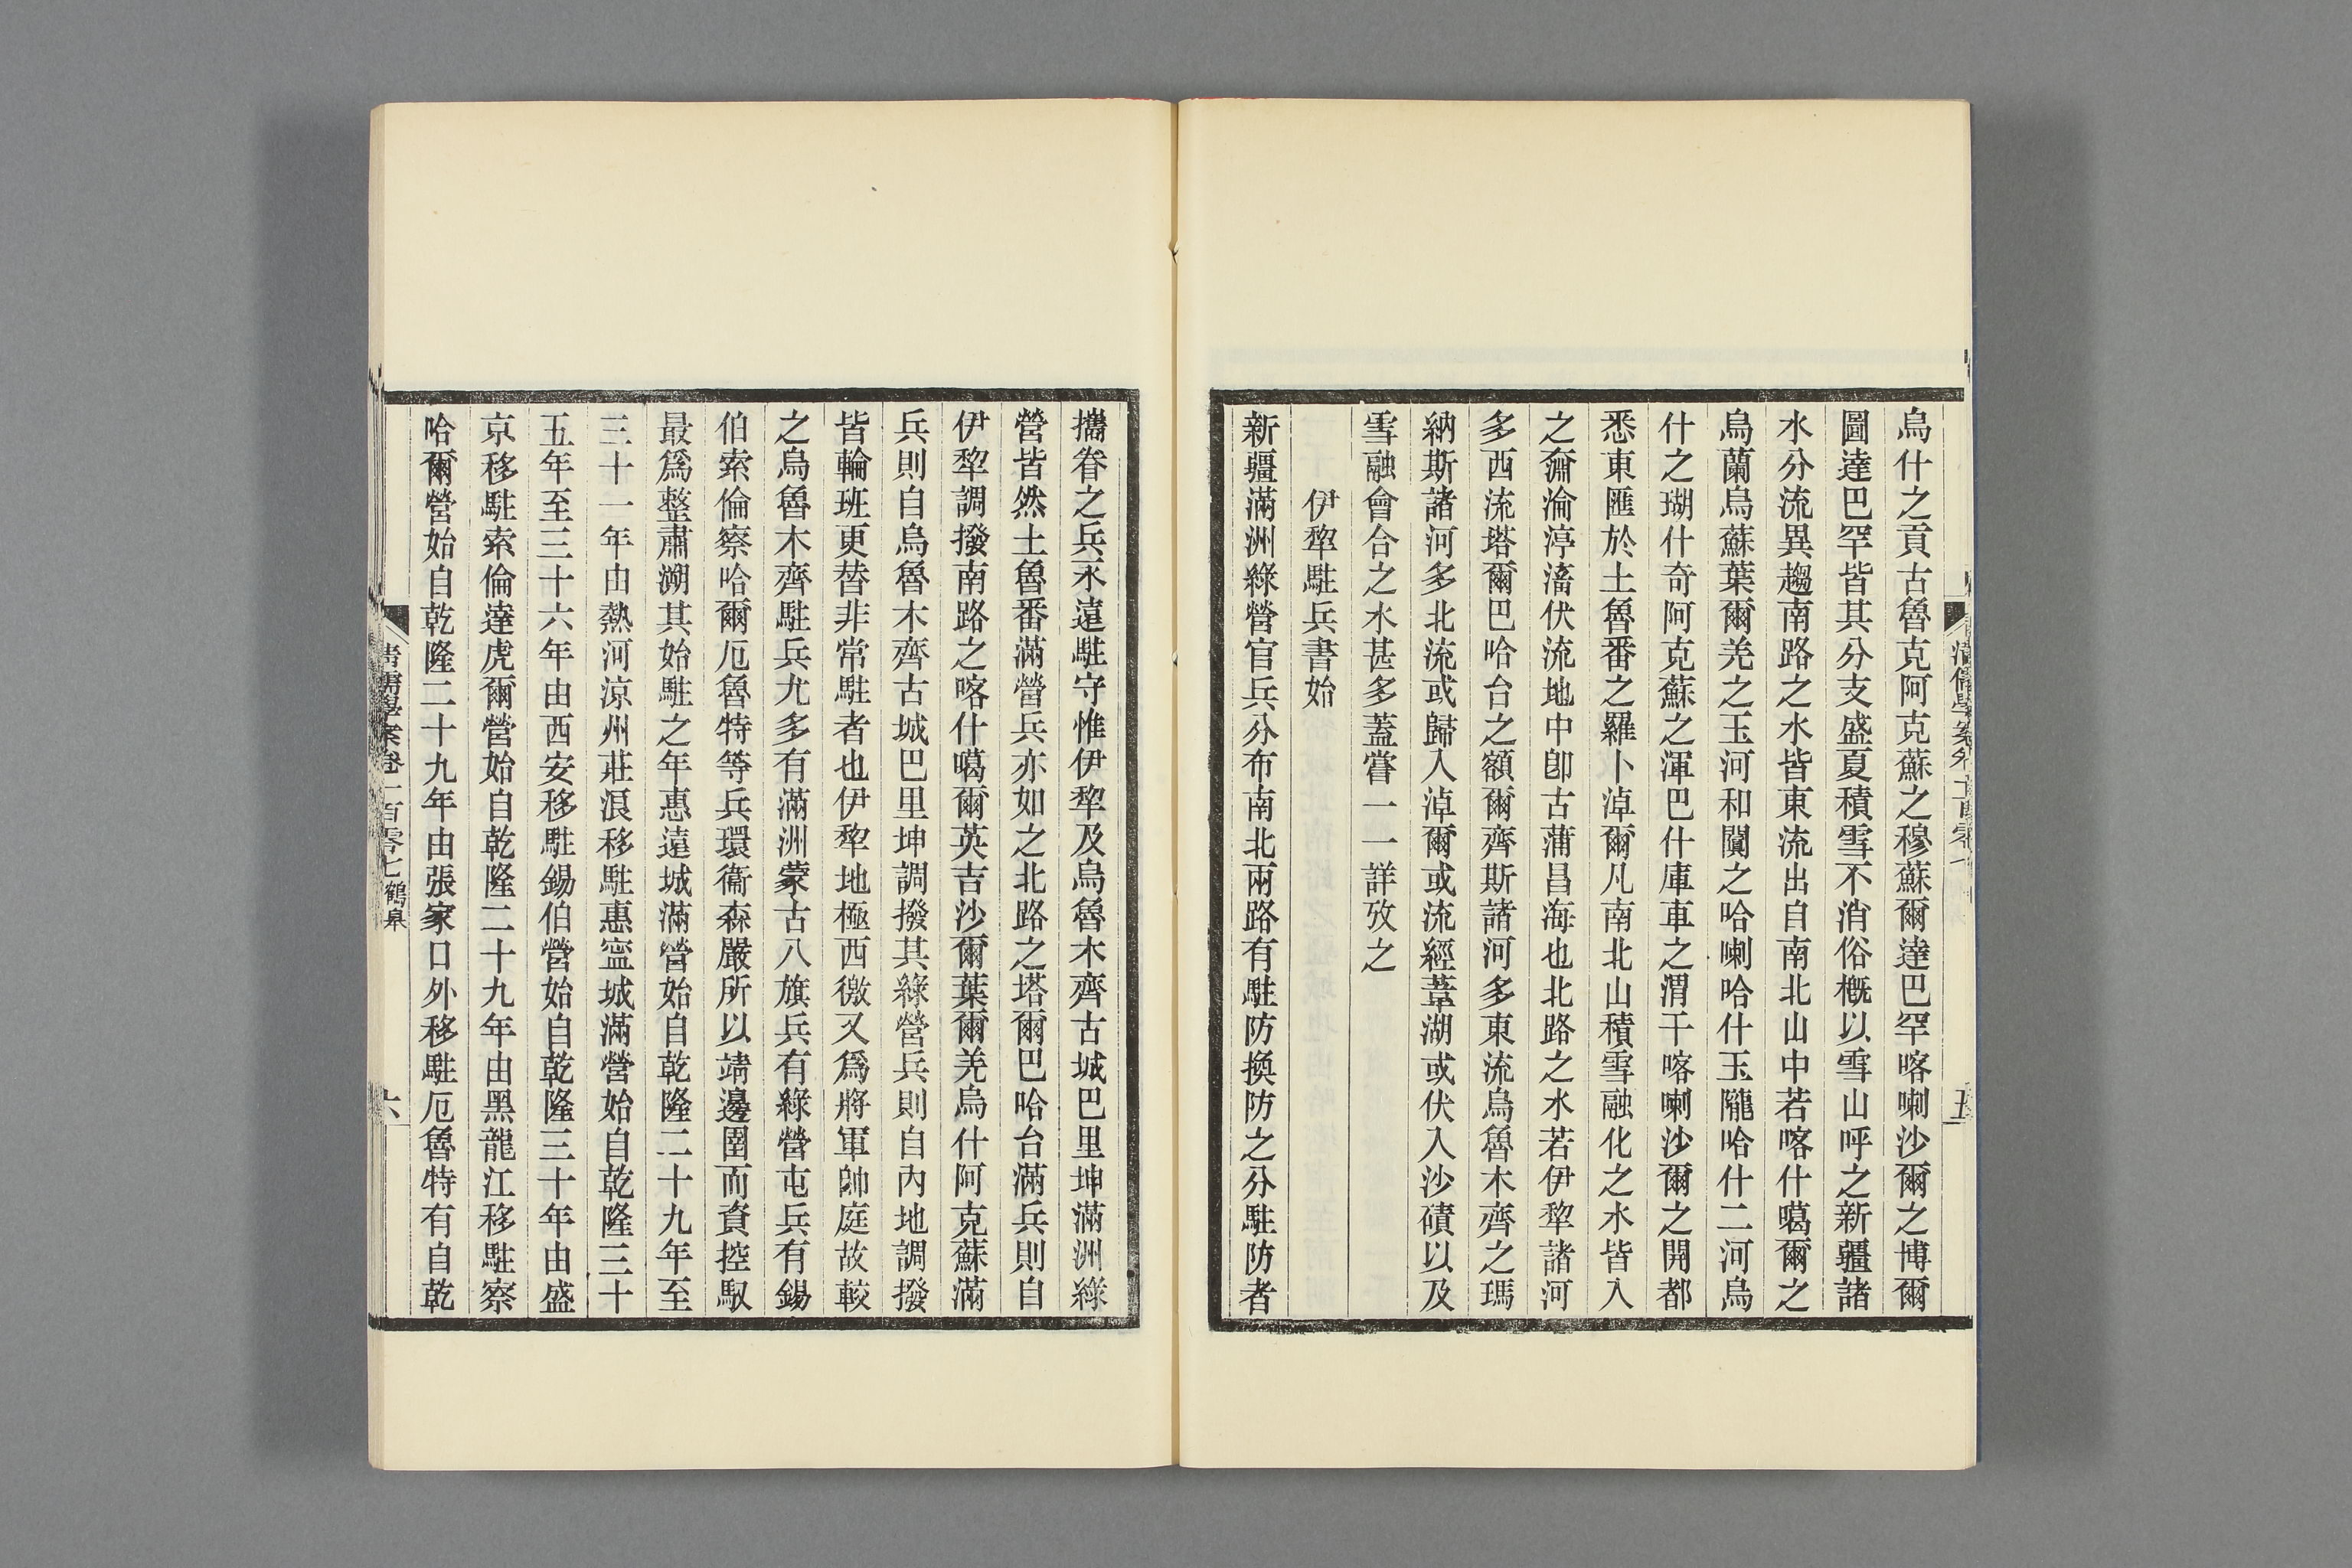 烏什之貢古魯克阿克蘇之穆蘇爾達巴罕喀喇沙爾之博爾
圖達巴罕皆其分支盛夏積雪不消俗概以雪山呼之新疆諸
水分流異趨南路之水皆東流出自南北山中若喀什噶爾之
烏蘭烏蘇葉爾羌之玉河和闐之哈喇哈什玉隴哈什二河烏
什之瑚什奇阿克蘇之渾巴什庫車之渭干喀喇沙爾之開都
悉東匯於土魯番之羅卜淖爾凡南北山積雪融化之水皆入
之奫淪渟滀伏流地中卽古蒲昌海也北路之水若伊犂諸河
多西流塔爾巴哈台之額爾齊斯諸河多東流烏魯木齊之瑪
納斯諸河多北流或歸入淖爾或流經葦湖或伏入沙磧以及
雪融會合之水甚多蓋嘗一一詳攷之
伊犂駐兵書始
新疆滿洲綠營官兵分布南北兩路有駐防換防之分駐防者
攜眷之兵永遠駐守惟伊犂及烏魯木齊古城巴里坤滿洲綠
營皆然土魯番滿營兵亦如之北路之塔爾巴哈台滿兵則自
伊犂調撥南路之喀什噶爾英吉沙爾葉爾羌烏什阿克蘇滿
兵則自烏魯木齊古城巴里坤調撥其綠營兵則自內地調撥
皆輪班更替非常駐者也伊犂地極西徼又爲將軍帥庭故較
之烏魯木齊駐兵尤多有滿洲蒙古八旗兵有綠營屯兵有錫
伯索倫察哈爾厄魯特等兵環衞森嚴所以靖邊圉而資控馭
最爲整肅溯其始駐之年惠遠城滿營始自乾隆二十九年至
三十一年由熱河涼州莊浪移駐惠寍城滿營始自乾隆三十
五年至三十六年由西安移駐錫伯營始自乾隆三十年由盛
京移駐索倫達虎爾營始自乾隆二十九年由黑龍江移駐察
哈爾營始自乾隆二十九年由張家口外移駐厄魯特有自乾
清儒學案卷一百零七 鶴皋
六